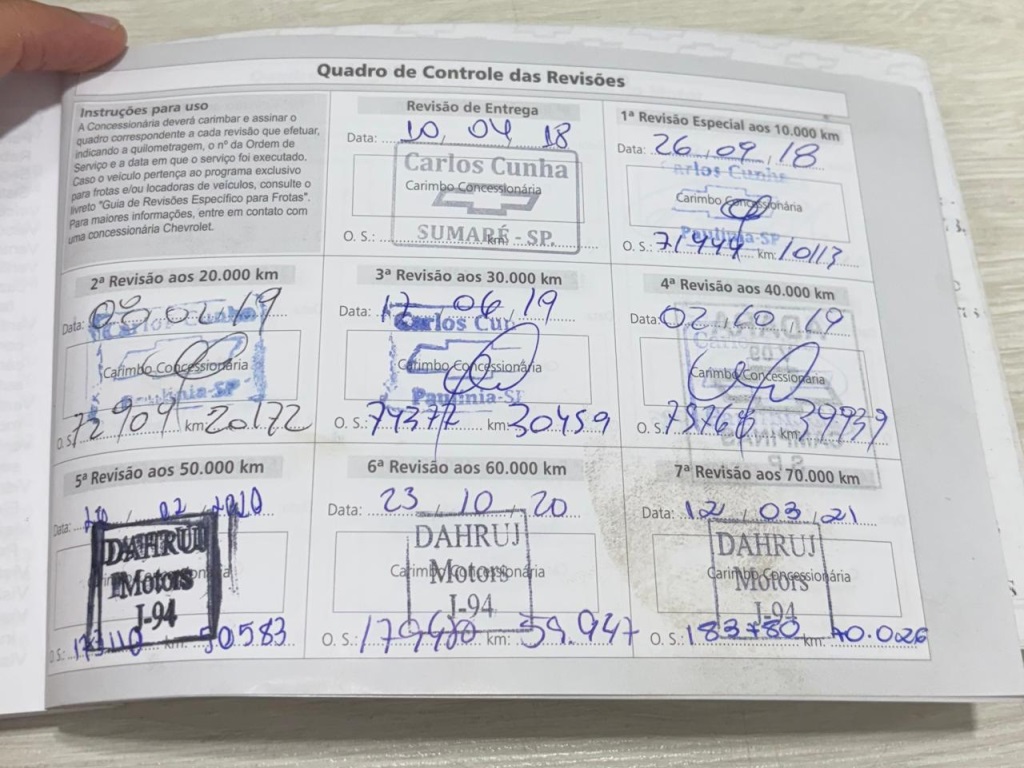 Quadro de Controle das Revisões
Instruções para uso
A Concessionária deverá carimbar e assinar o
quadro correspondente a cada revisão que efetuar,
indicando a quilometragem, o nº da Ordem de
Serviço e a data em que o serviço foi executado.
Caso o veículo pertença ao programa exclusivo
para frotas e/ou locadoras de veículos, consulte o
livreto "Guia de Revisões Específico para Frotas".
Para maiores informações, entre em contato com
uma concessionária Chevrolet.
Revisão de Entrega
Data: 10, 04 18
Carlos Cunha
Carimbo Concessionária
SUMARÉ - SP.
O. S.: km:
1ª Revisão Especial aos 10.000 km
Data: 26, 09, 18
Carlos Cunha
Carimbo Concessionária
Paulínia-SP
O. S.: 71444 km: 10113
2ª Revisão aos 20.000 km
Data: 02, 19
Carlos Cunha
Carimbo Concessionária
Paulínia-SP
O. S. 72909 km 20172
3ª Revisão aos 30.000 km
Data: 17 06, 19
Carlos Cun
Carimbo Concessionária
Paulínia-SP
O. S.: 74377 km 30459
4ª Revisão aos 40.000 km
Data: 02, 10, 19
Carimbo Concessionária
O. S. km: 39939
5ª Revisão aos 50.000 km
Data: 02, 2020
DAHRUJ
Motors
J-94
O.S.: km: 50583
6ª Revisão aos 60.000 km
Data: 23, 10, 20
DAHRUJ
Carimbo Concessionária
Motors
J-94
O. S.: 179480 km: 59.947
7ª Revisão aos 70.000 km
Data: 12, 03, 21
DAHRUJ
Carimbo Concessionária
Motors
J-94
O. S.: 183780 km: 70.026